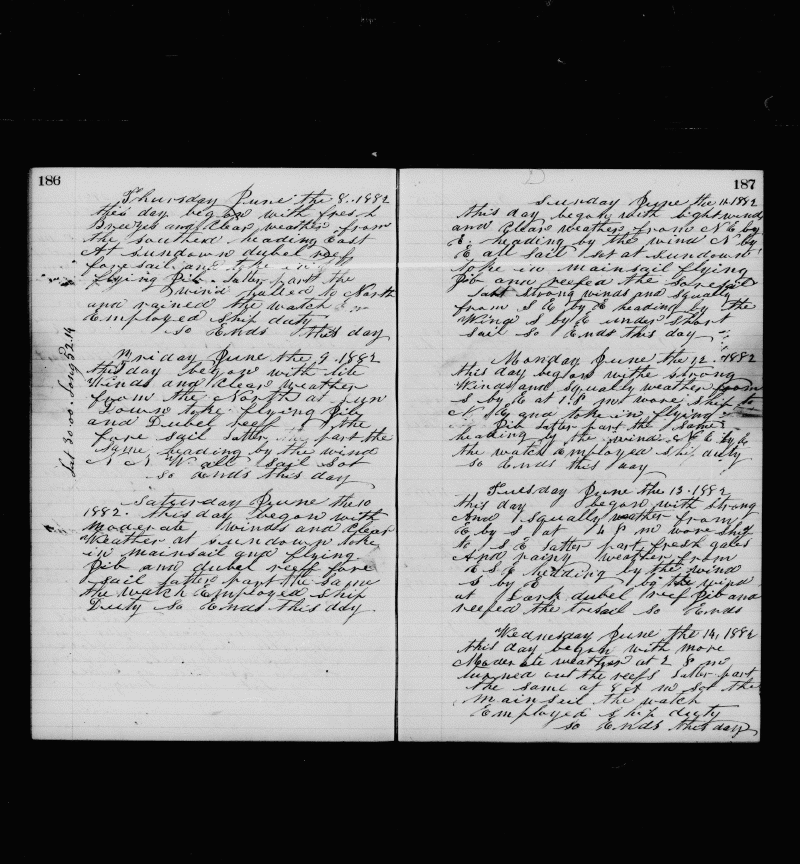 186
Thursday June the 8. 1882
this day began with fresh
Breezes and Clear weather from
the southerd heading East
At sundown dubel reefs
fore sail and toke in
flying Jib. Latter part the
wind halled to North
and rained the watch
Employed ship duty
so Ends this day
Lat 30.00. Long 52.14
Friday June the 9. 1882
this day began with lite
Winds and Clear weather
from the North at sun
Down toke flying Jib
and Dubel reef the
fore sail latter part the
same heading by the wind
N N W all sail sot
so Ends this day
Saturday June the 10
1882. this day began with
Moderate winds and Clear
Weather at sundown toke
in mainsail and flying
Jib and dubel reef fore
sail latter part the same
the watch Employed ship
Duty so Ends this day
187
Sunday June the 11. 1882
this day began with light winds
and Clear weather from N E by
E. heading by the wind N by
E all sail sot at sundown
toke in mainsail flying
Jib and reefed the foresail
Last strong winds and squally
from S E by E heading by the
Wind S by E under short
sail so Ends this day
Monday June the 12. 1882
this day began withe strong
Winds and squally weather from
S by E at 1.P m wore ship to
N E and toke in flying
Jib latter part the same
heading by the wind N E by E
the watch Employed ship duty
so Ends this day
Tuesday June the 13. 1882
this day began with strong
And squally weather from
E by S at 4 P m wore ship
to S E latter part fresh gales
And rainy weather from
E S E hedding by the wind
S by E by the wind
at Dark dubel reef Jib and
reefed the trisail so Ends
Wednesday June the 14, 1882
this day began with more
Moderate weather at 2 P m
turned out the reefs latter part
the same at 8 A m sot the
mainsail the watch
Employed ship duty
so Ends this day